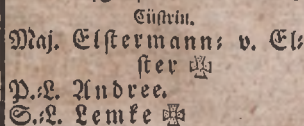 Cüstrin.
Maj. Elstermann⸗ v. El⸗
ster ✠
P.⸗L. Andree.
S.⸗L. Lemke ✠